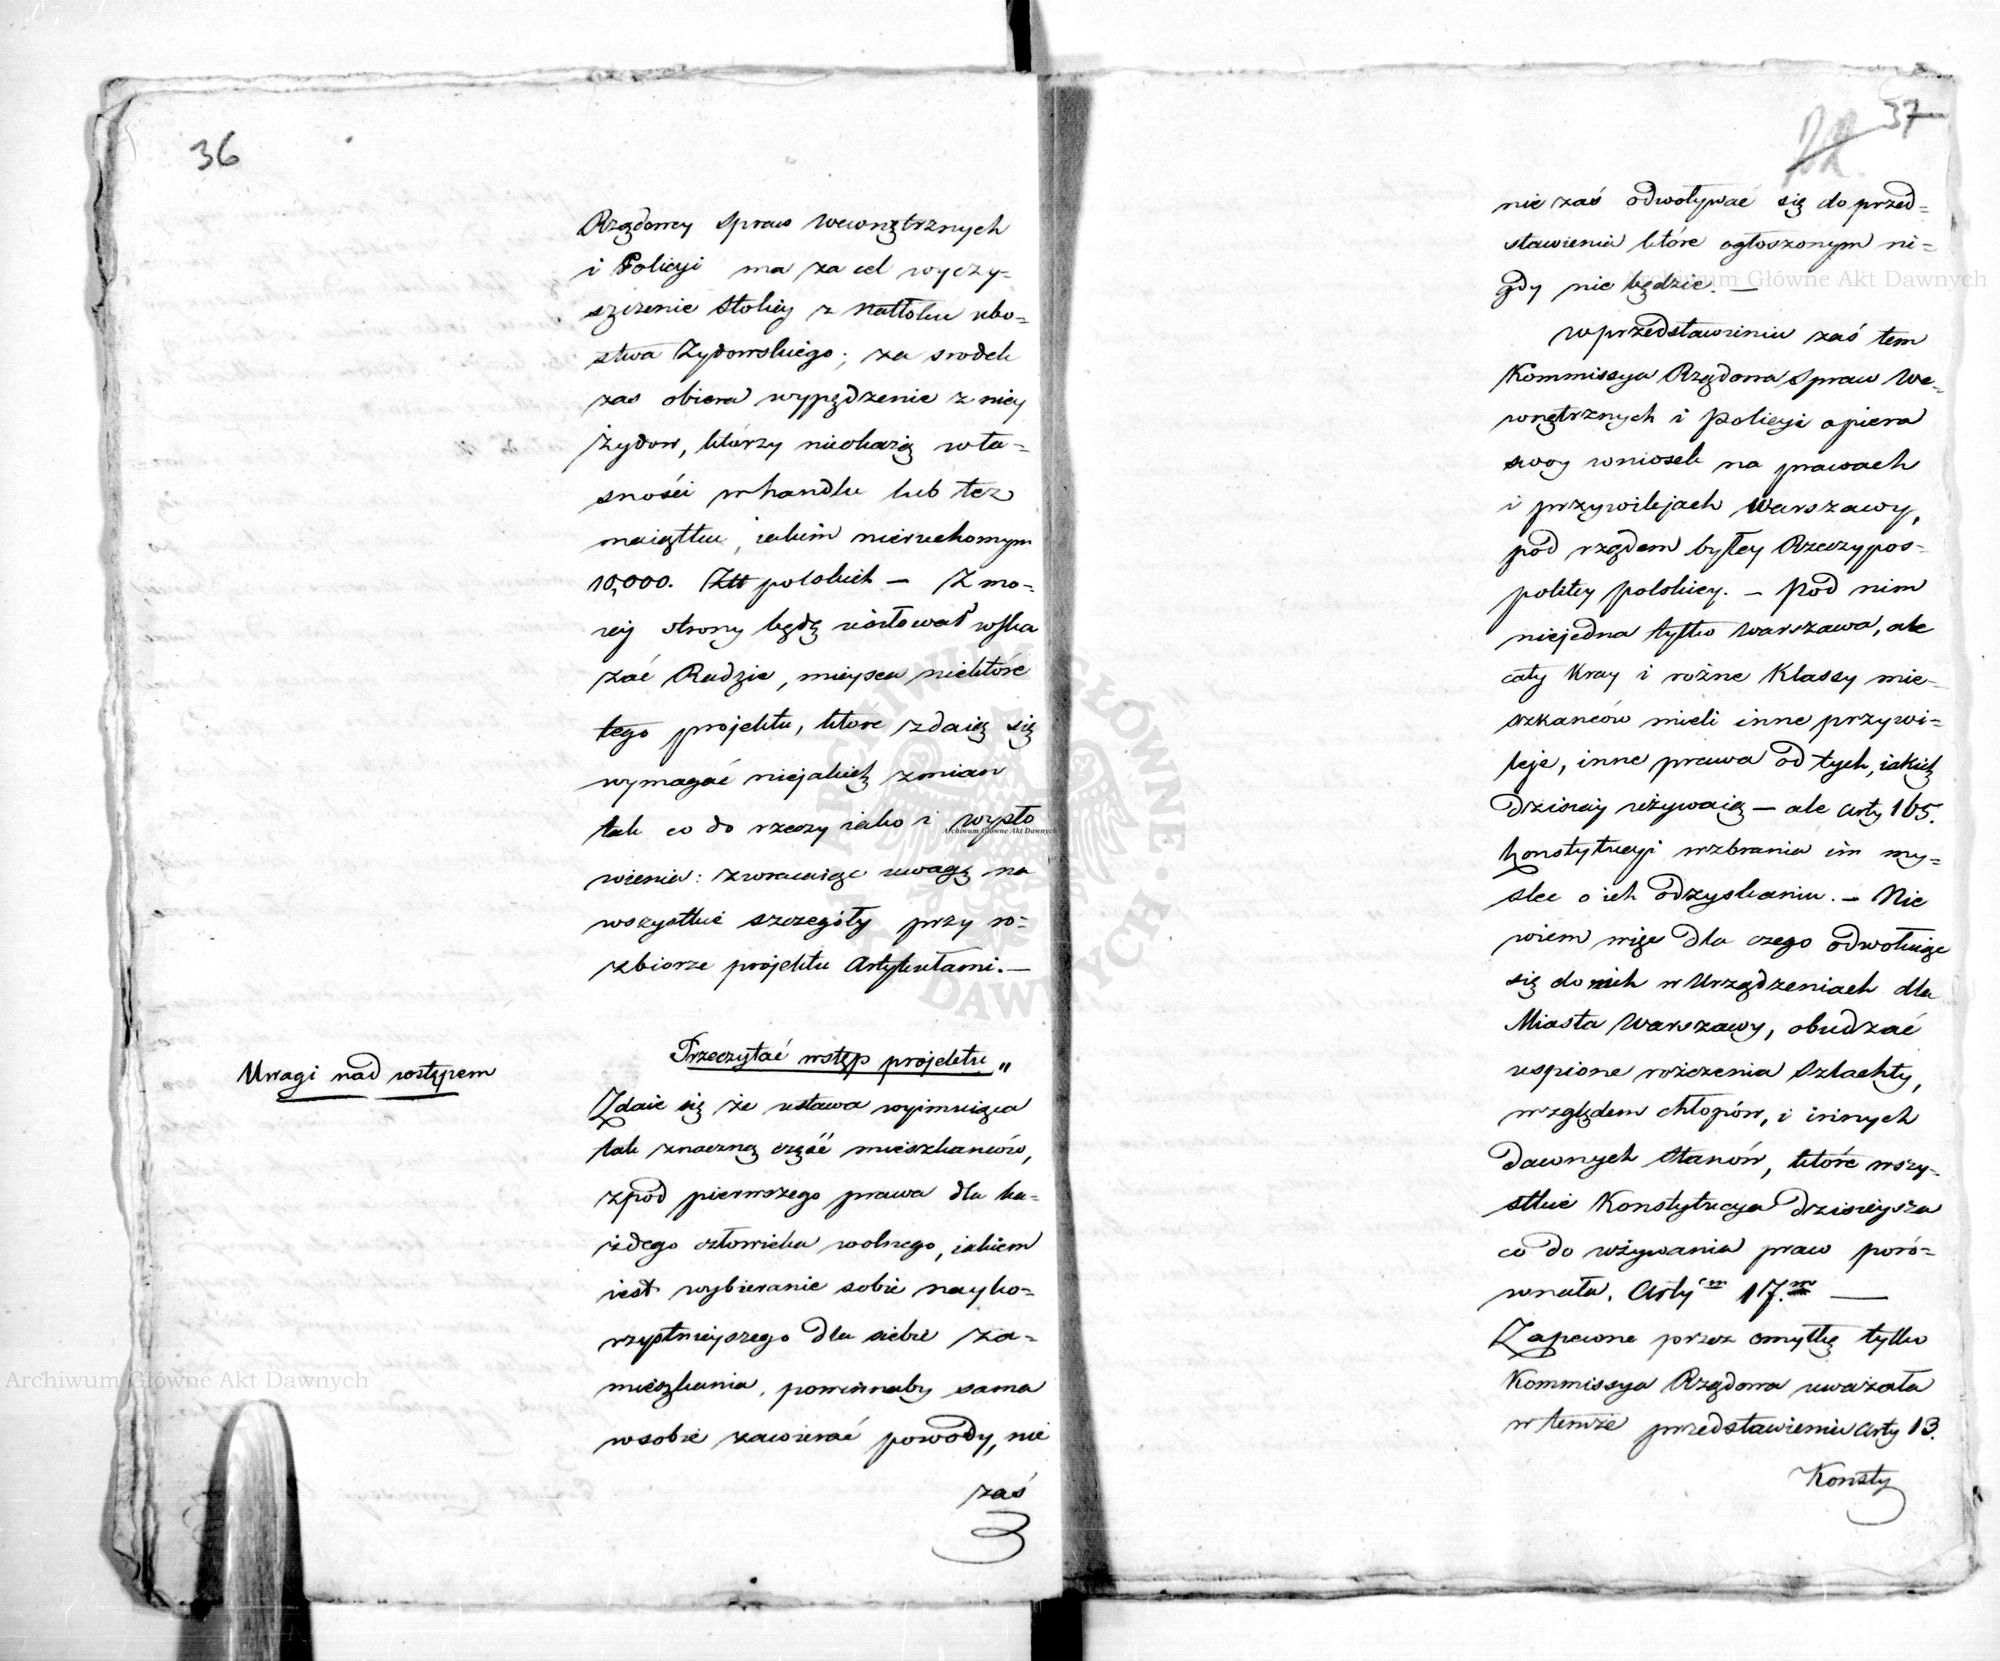 36
Rządowey Spraw Wewnętrznych
i Policyi ma za cel wyczy-
szczenie Stolicy z natłoku ubo-
stwa Żydowskiego; za srodek
zas obiera wypędzenie z niey
Żydow, którzy nieokażą wła-
sności w handlu lub też
maiątku iakim nieruchomym
10,000. Złł polskich — Z mo-
iey strony będę usiłował wska
zać Radzie, mieysca niektóre
tego projektu, które zdaią się
wymagać niejakich zmian
tak co do rzeczy iako i wysło
wienia: zwracaiąc uwagę na
wszystkie szczegóły przy ro-
zbiorze projektu Artykułami. —
Uwagi nad wstępem
Przeczytać wstęp projektu „
Zdaie się że ustawa wyimuiąca
tak znaczną część mieszkanców,
zpod pierwszego prawa dla ka-
żdego człowieka wolnego, iakiem
iest wybieranie sobie nayko-
rzystnieyszego dla siebie za-
mieszkania, powinnaby sama
wsobie zawierać powody, nie
zaś
37
nie zaś odwoływać się do przed-
stawienia które ogłoszonym ni-
gdy nie będzie. —
w przedstawieniu zaś tem
Kommissya Rządowa Spraw We-
wnętrznych i Policyi opiera
swoy wniosek na prawach
i przywilejach Warszawy,
pod rządem byłey Rzeczypos-
politey polskiey. — Pod nim
niejedna tylko Warszawa, ale
cały Kray i różne Klassy mie-
szkańców mieli inne przywi-
leje, inne prawa od tych, iakich
dzisiay używaią — ale arty 165.
Konstytucyi wzbrania im my-
slec o ich odzyskaniu. — Nie
wiem więc dla czego odwołuiąc
się do nich w Urządzeniach dla
Miasta Warszawy, obudzać
uspione rożczenia Szlachty,
względem chłopów, i innych
dawnych Stanów, które wszy-
stkie Konstytucya dzisieysza
co do używania praw poró-
wnała, Arty em 17.m —
Zapewne przez omyłkę tylko
Kommissya Rządowa uważała
w temże przedstawieniu Arty 13.
Konsty
Archiwum Główne Akt Dawnych
Archiwum Główne Akt Dawnych
Archiwum Główne Akt Dawnych
ARCHIWUM GŁÓWNE AKT DAWNYCH